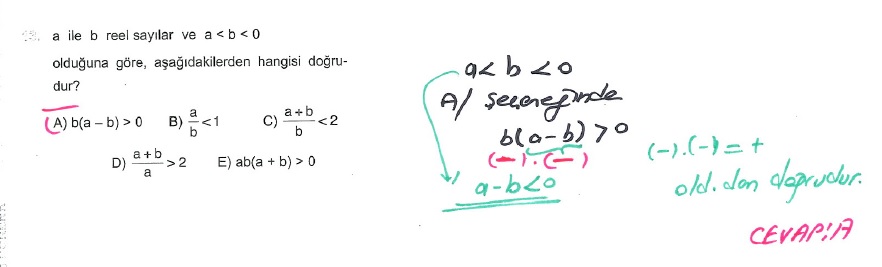 13. a ile b reel sayılar ve a < b < 0
olduğuna göre, aşağıdakilerden hangisi doğru-
dur?
A) b(a – b) > 0 B) a/b < 1 C) (a + b)/b < 2
D) (a + b)/a > 2 E) ab(a + b) > 0
a < b < 0
A/ seçeneğinde
b(a-b) > 0
(-).(-)
a-b<0
(-).(-) = +
old.dan doğrudur.
CEVAP:A